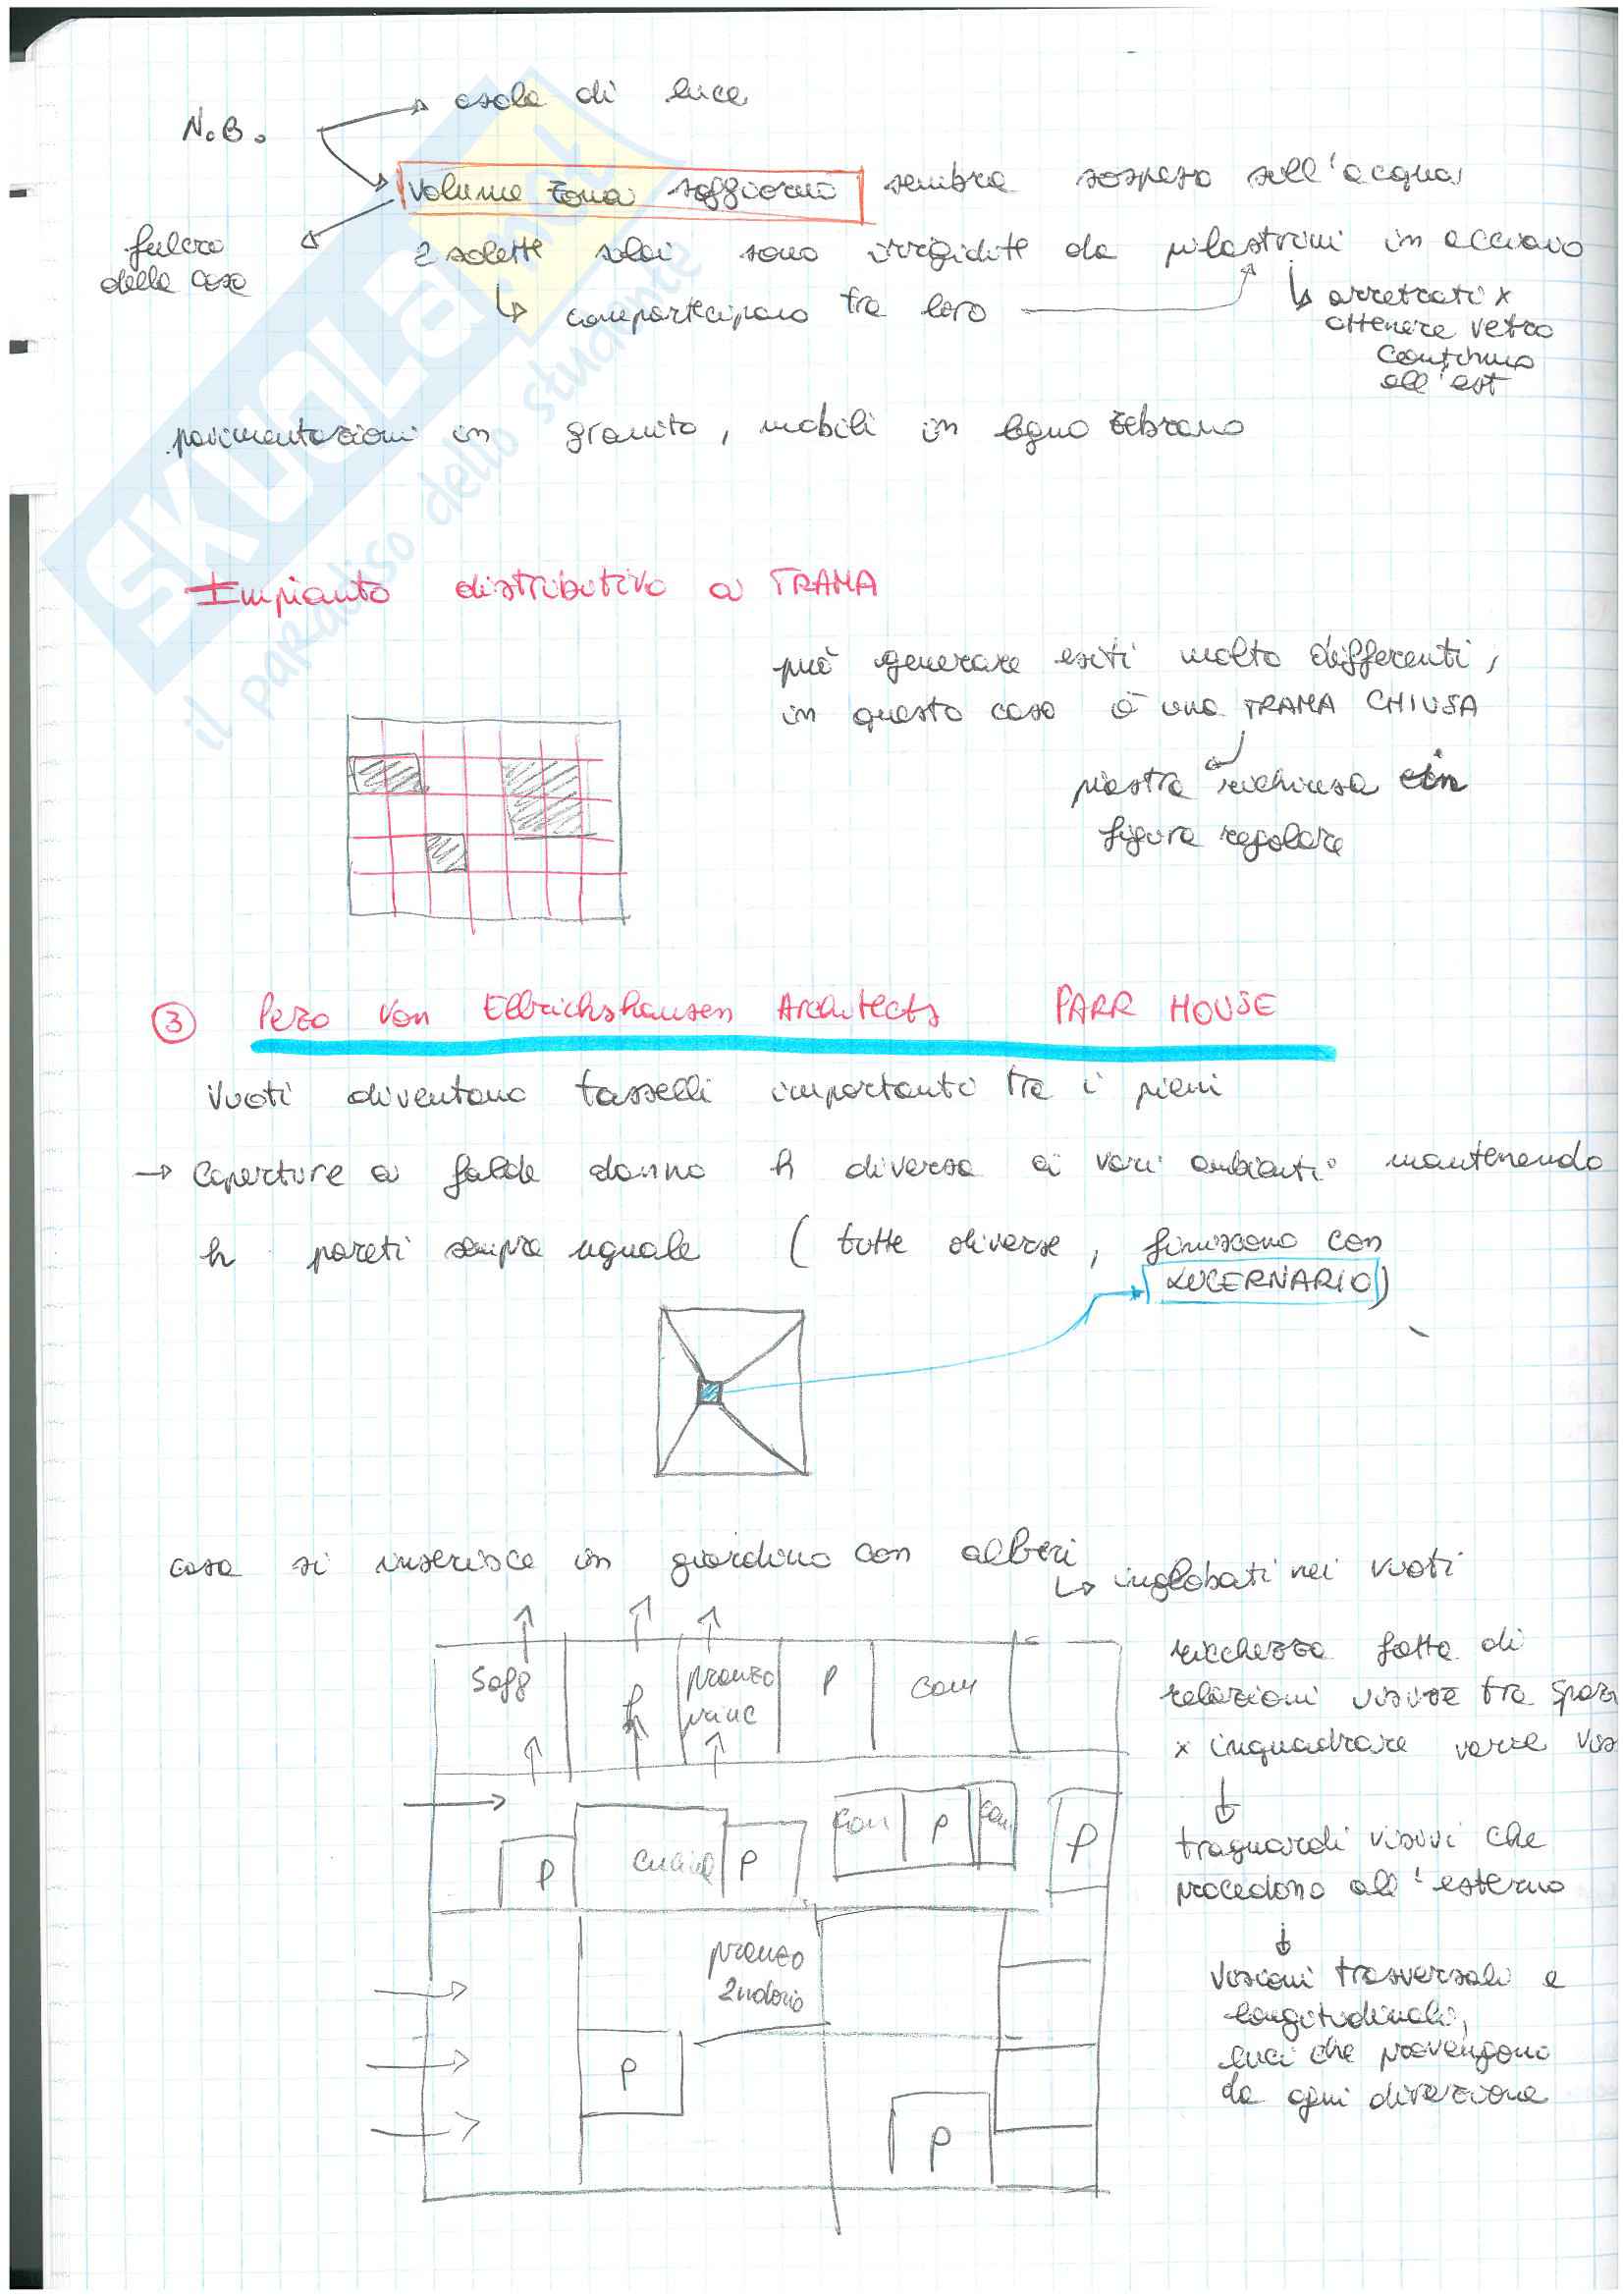 N.B.
asola di luce
volume zona soggiorno sembra sospeso sull'acqua
fulcro
della casa
2 solette solai sono irrigidite da pilastrini in acciaio
compartecipano tra loro
arretrati x
ottenere vetro
continuo
all'est
pavimentazioni in granito, mobili in legno zebrano
SKUOLA.net
il paradiso dello studente
Impianto distributivo a TRAMA
può generare esiti molto differenti,
in questo caso è una TRAMA CHIUSA
piastra richiusa in
figura regolare
3 Pezo Von Ellrichshausen Architects PARR HOUSE
Vuoti diventano tasselli importanti tra i pieni
→ Coperture a falde danno h diversa ai vari ambienti mantenendo
h pareti sempre uguale (tutte diverse, finiscono con
LUCERNARIO)
casa si inserisce in giardino con alberi
inglobati nei vuoti
Sogg
P
pranzo
princ
P
cam
ricchezza fatta di
relazioni visive tra spazi
x inquadrare varie vis
P
cucina
P
cam
P
cam
P
traguardi visivi che
procedono all'esterno
pranzo
2ndario
visioni trasversali e
longitudinali,
luci che provengono
da ogni direzione
P
P